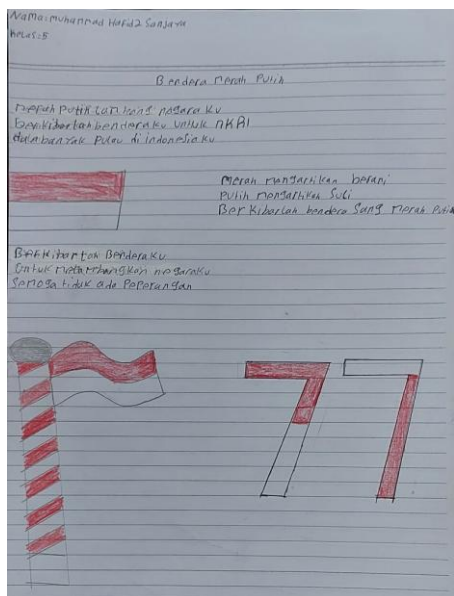 Nama: Muhammad Hafidz Sanjaya
Kelas: 5
Bendera Merah Putih
Merah Putih Lambang negara ku
Berkibarlah benderaku untuk NKRI
di banyak Pulau di indonesia ku
Merah mengartikan berani
Putih mengartikan Suci
Berkibarlah bendera Sang Merah Putih
Berkibarlah Benderaku
Untuk melambangkan negaraku
Semoga tidak ada Peperangan
77